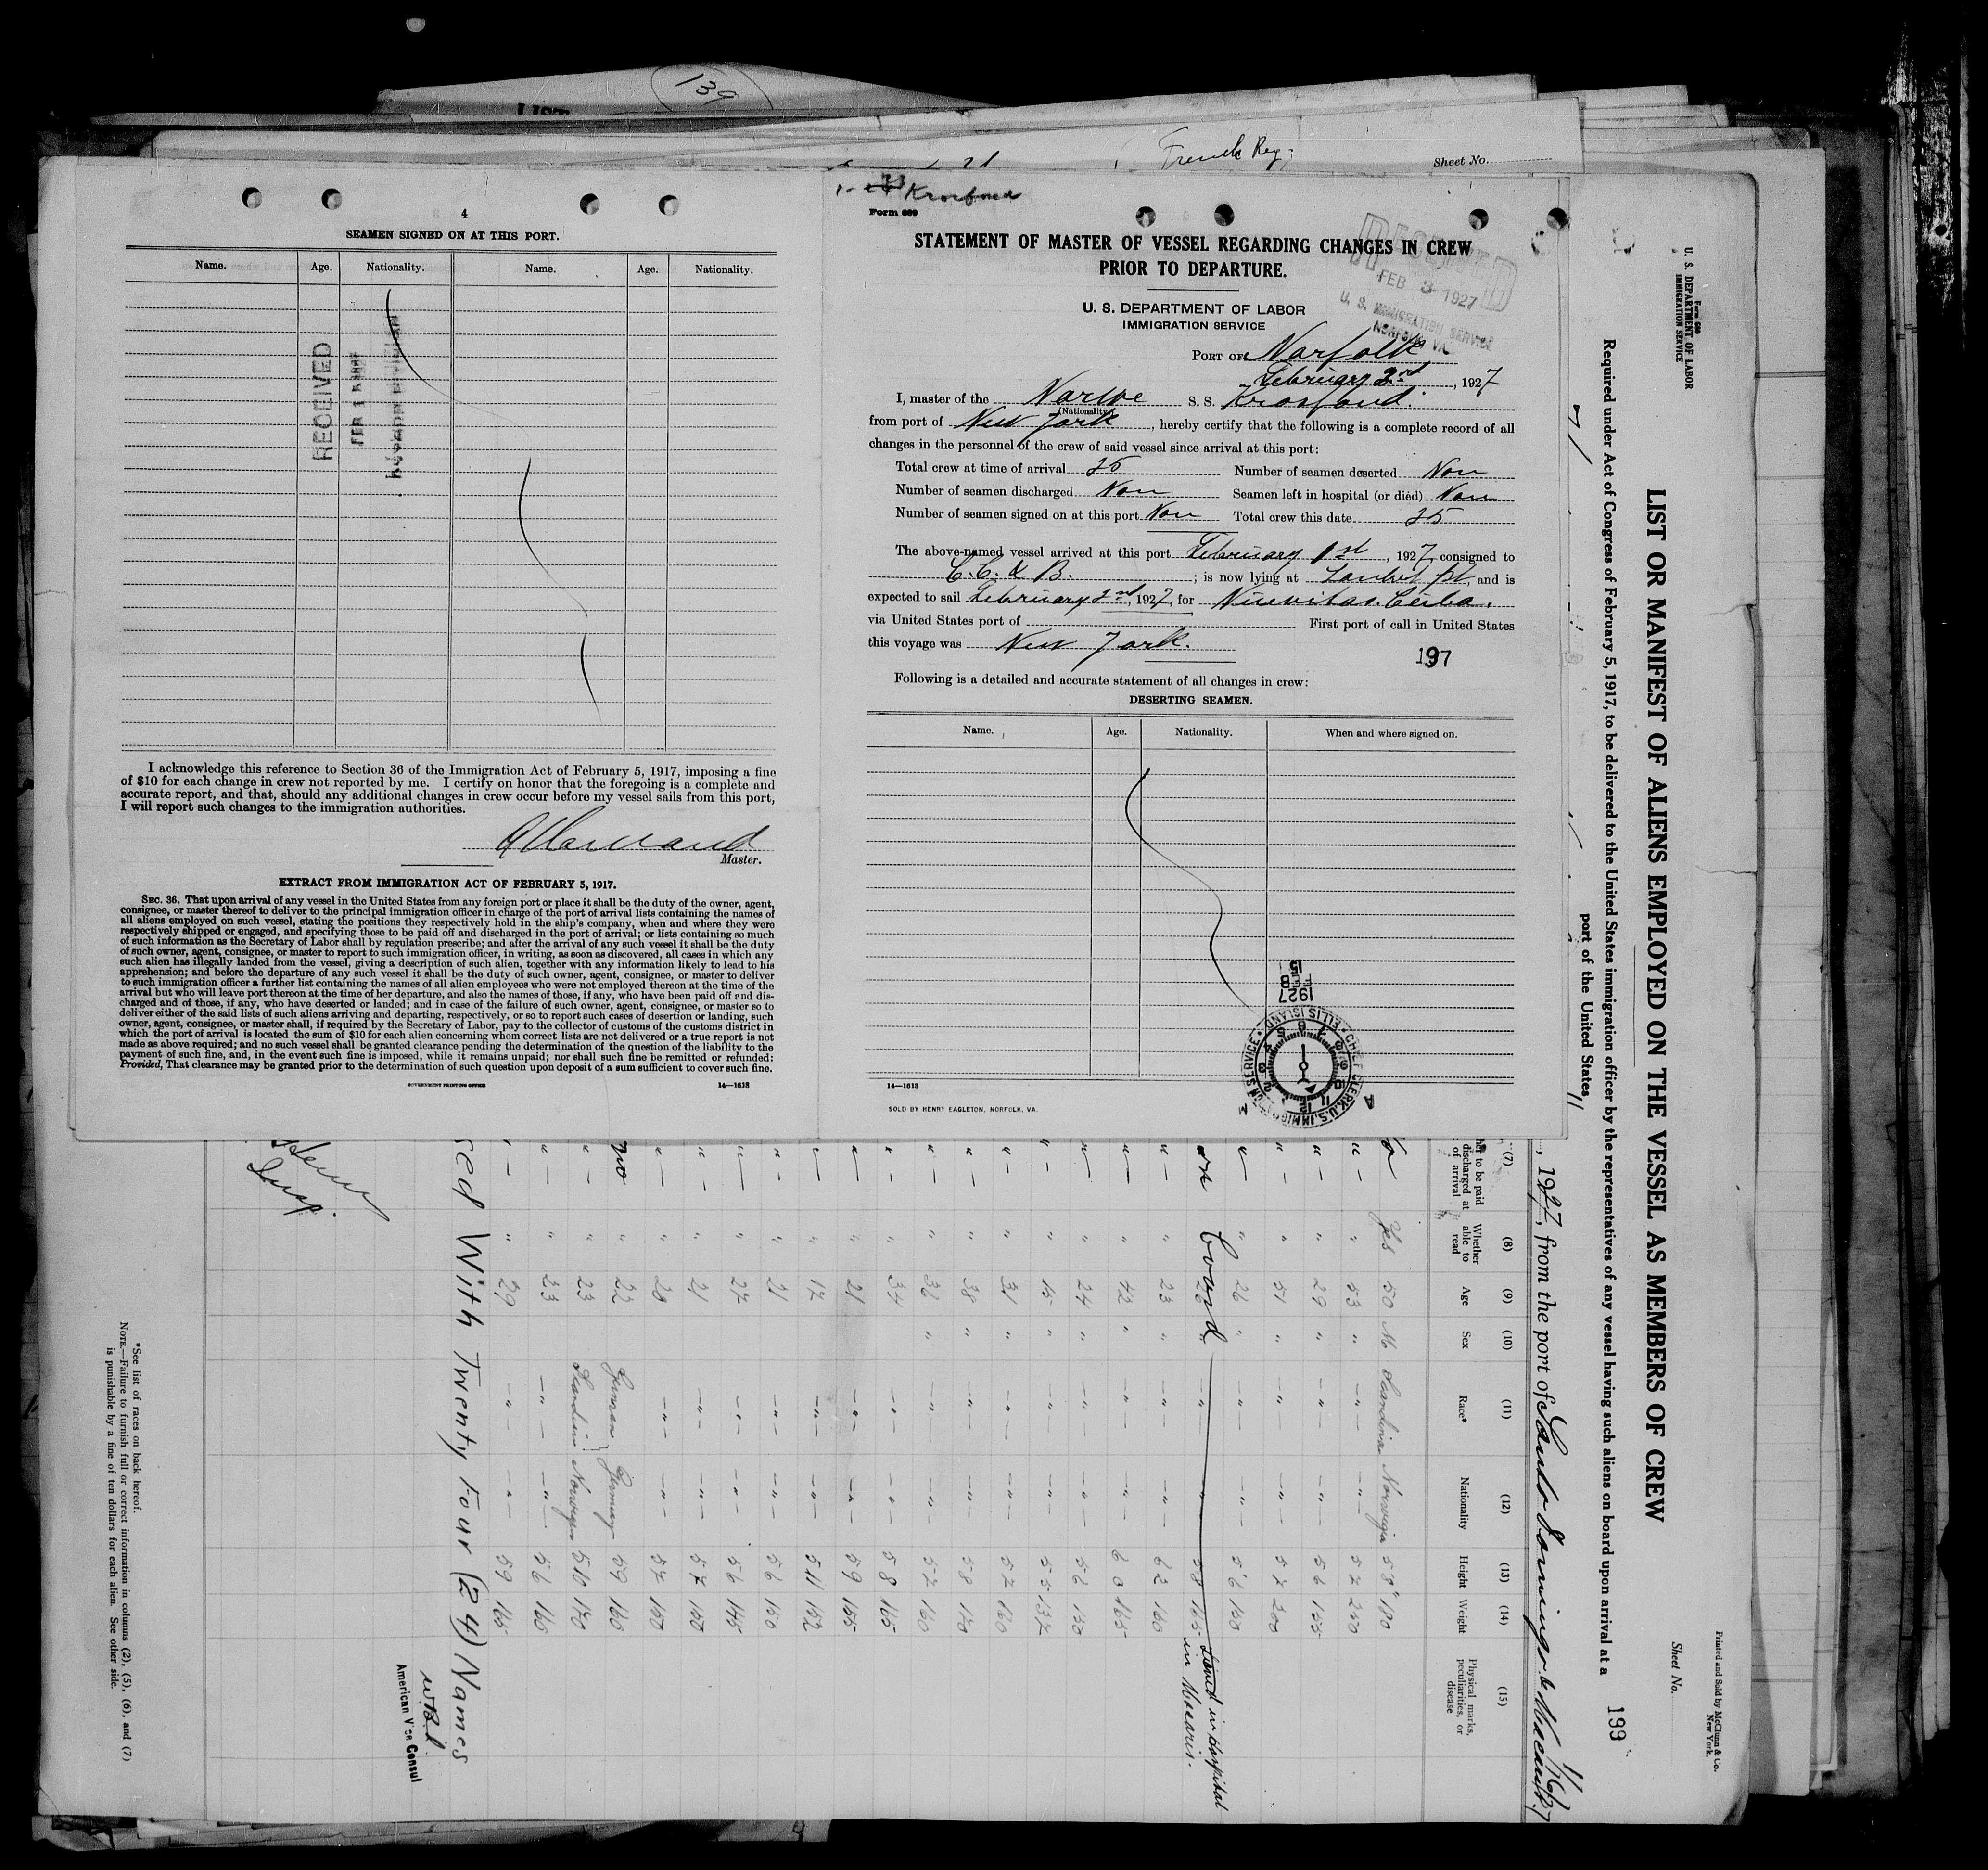 139
LIST
French Reg.
Sheet No.
4
SEAMEN SIGNED ON AT THIS PORT.
Name. Age. Nationality. Name. Age. Nationality.
RECEIVED
I acknowledge this reference to Section 36 of the Immigration Act of February 5, 1917, imposing a fine
of $10 for each change in crew not reported by me. I certify on honor that the foregoing is a complete and
accurate report, and that, should any additional changes in crew occur before my vessel sails from this port,
I will report such changes to the immigration authorities.
Master.
EXTRACT FROM IMMIGRATION ACT OF FEBRUARY 5, 1917.
SEC. 36. That upon arrival of any vessel in the United States from any foreign port or place it shall be the duty of the owner, agent,
consignee, or master thereof to deliver to the principal immigration officer in charge of the port of arrival lists containing the names of
all aliens employed on such vessel, stating the positions they respectively hold in the ship's company, when and where they were
respectively shipped or engaged, and specifying those to be paid off and discharged in the port of arrival; or lists containing so much
of such information as the Secretary of Labor shall by regulation prescribe; and after the arrival of any such vessel it shall be the duty
of such owner, agent, consignee, or master to report to such immigration officer, in writing, as soon as discovered, all cases in which any
such alien has illegally landed from the vessel, giving a description of such alien, together with any information likely to lead to his
apprehension; and before the departure of any such vessel it shall be the duty of such owner, agent, consignee, or master to deliver
to such immigration officer a further list containing the names of all alien employees who were not employed thereon at the time of the
arrival but who will leave port thereon at the time of her departure, and also the names of those, if any, who have been paid off and dis-
charged and of those, if any, who have deserted or landed; and in case of the failure of such owner, agent, consignee, or master so to
deliver either of the said lists of such aliens arriving and departing, respectively, or so to report such cases of desertion or landing, such
owner, agent, consignee, or master shall, if required by the Secretary of Labor, pay to the collector of customs of the customs district in
which the port of arrival is located the sum of $10 for each alien concerning whom correct lists are not delivered or a true report is not
made as above required; and no such vessel shall be granted clearance pending the determination of the question of the liability to the
payment of such fine, and, in the event such fine is imposed, while it remains unpaid; nor shall such fine be remitted or refunded:
Provided, That clearance may be granted prior to the determination of such question upon deposit of a sum sufficient to cover such fine.
GOVERNMENT PRINTING OFFICE 14—1613
Krosfond
Form 689
STATEMENT OF MASTER OF VESSEL REGARDING CHANGES IN CREW
PRIOR TO DEPARTURE.
FEB 3 1927
U. S. IMMIGRATION SERVICE
NORFOLK VA.
U. S. DEPARTMENT OF LABOR
IMMIGRATION SERVICE
PORT OF Norfolk
February 2nd, 1927
I, master of the Norwe S. S. Krosfond.
(Nationality.)
from port of New York, hereby certify that the following is a complete record of all
changes in the personnel of the crew of said vessel since arrival at this port:
Total crew at time of arrival 25 Number of seamen deserted Non
Number of seamen discharged Non Seamen left in hospital (or died) Non
Number of seamen signed on at this port Non Total crew this date 25
The above-named vessel arrived at this port February 1st, 1927, consigned to
C.C. & B.; is now lying at Lambert pt, and is
expected to sail February 2nd, 1927, for Nuevitas. Cuba.
via United States port of First port of call in United States
this voyage was New York.
197
Following is a detailed and accurate statement of all changes in crew:
DESERTING SEAMEN.
Name. Age. Nationality. When and where signed on.
1927
FEB
15
CHIEF CLERK, U.S. IMMIGRATION SERVICE • ELLIS ISLAND
A M
14—1613
SOLD BY HENRY EAGLETON, NORFOLK, VA.
Form 680
U. S. DEPARTMENT OF LABOR
IMMIGRATION SERVICE
Printed and Sold by McClunn & Co.
New York.
Sheet No.
LIST OR MANIFEST OF ALIENS EMPLOYED ON THE VESSEL AS MEMBERS OF CREW
199
Required under Act of Congress of February 5, 1917, to be delivered to the United States immigration officer by the representatives of any vessel having such aliens on board upon arrival at a
port of the United States
, 1927, from the port of Santo Domingo
(7) (8) (9) (10) (11) (12) (13) (14) (15)
to be paid discharged at of arrival
Whether able to read
Age
Sex
Race*
Nationality
Height
Weight
Physical marks, peculiarities, or disease
Yes 50 M Scandina Norwegia 58" 180
" 53 " " " 57 230
" 29 " " " 56 155
" 51 " " " 57 200
" 26 " " " 56 150
" " " 58 165 in hospital
" 23 " " " 62 160
" 42 " " " 60 165
" 24 " " " 56 150
" 15 " " " 55 137
" 31 " " " 57 160
" 38 " " " 58 170
" 36 " " " 57 160
" 34 " " 58 165
" 21 " " 59 155
" 17 " " 511 152
" 21 " " 56 150
" 27 " " 56 145
" 21 " " 57 150
" 28 " " 57 150
no " 22 German Germany 59 160
" 23 Scandin Norwegen 510 170
" 23 " " 56 160
" 29 " " 59 165
sed With Twenty Four (24) Names
American Vice Consul
*See list of races on back hereof.
NOTE.—Failure to furnish full or correct information in columns (2), (5), (6), and (7)
is punishable by a fine of ten dollars for each alien. See other side.